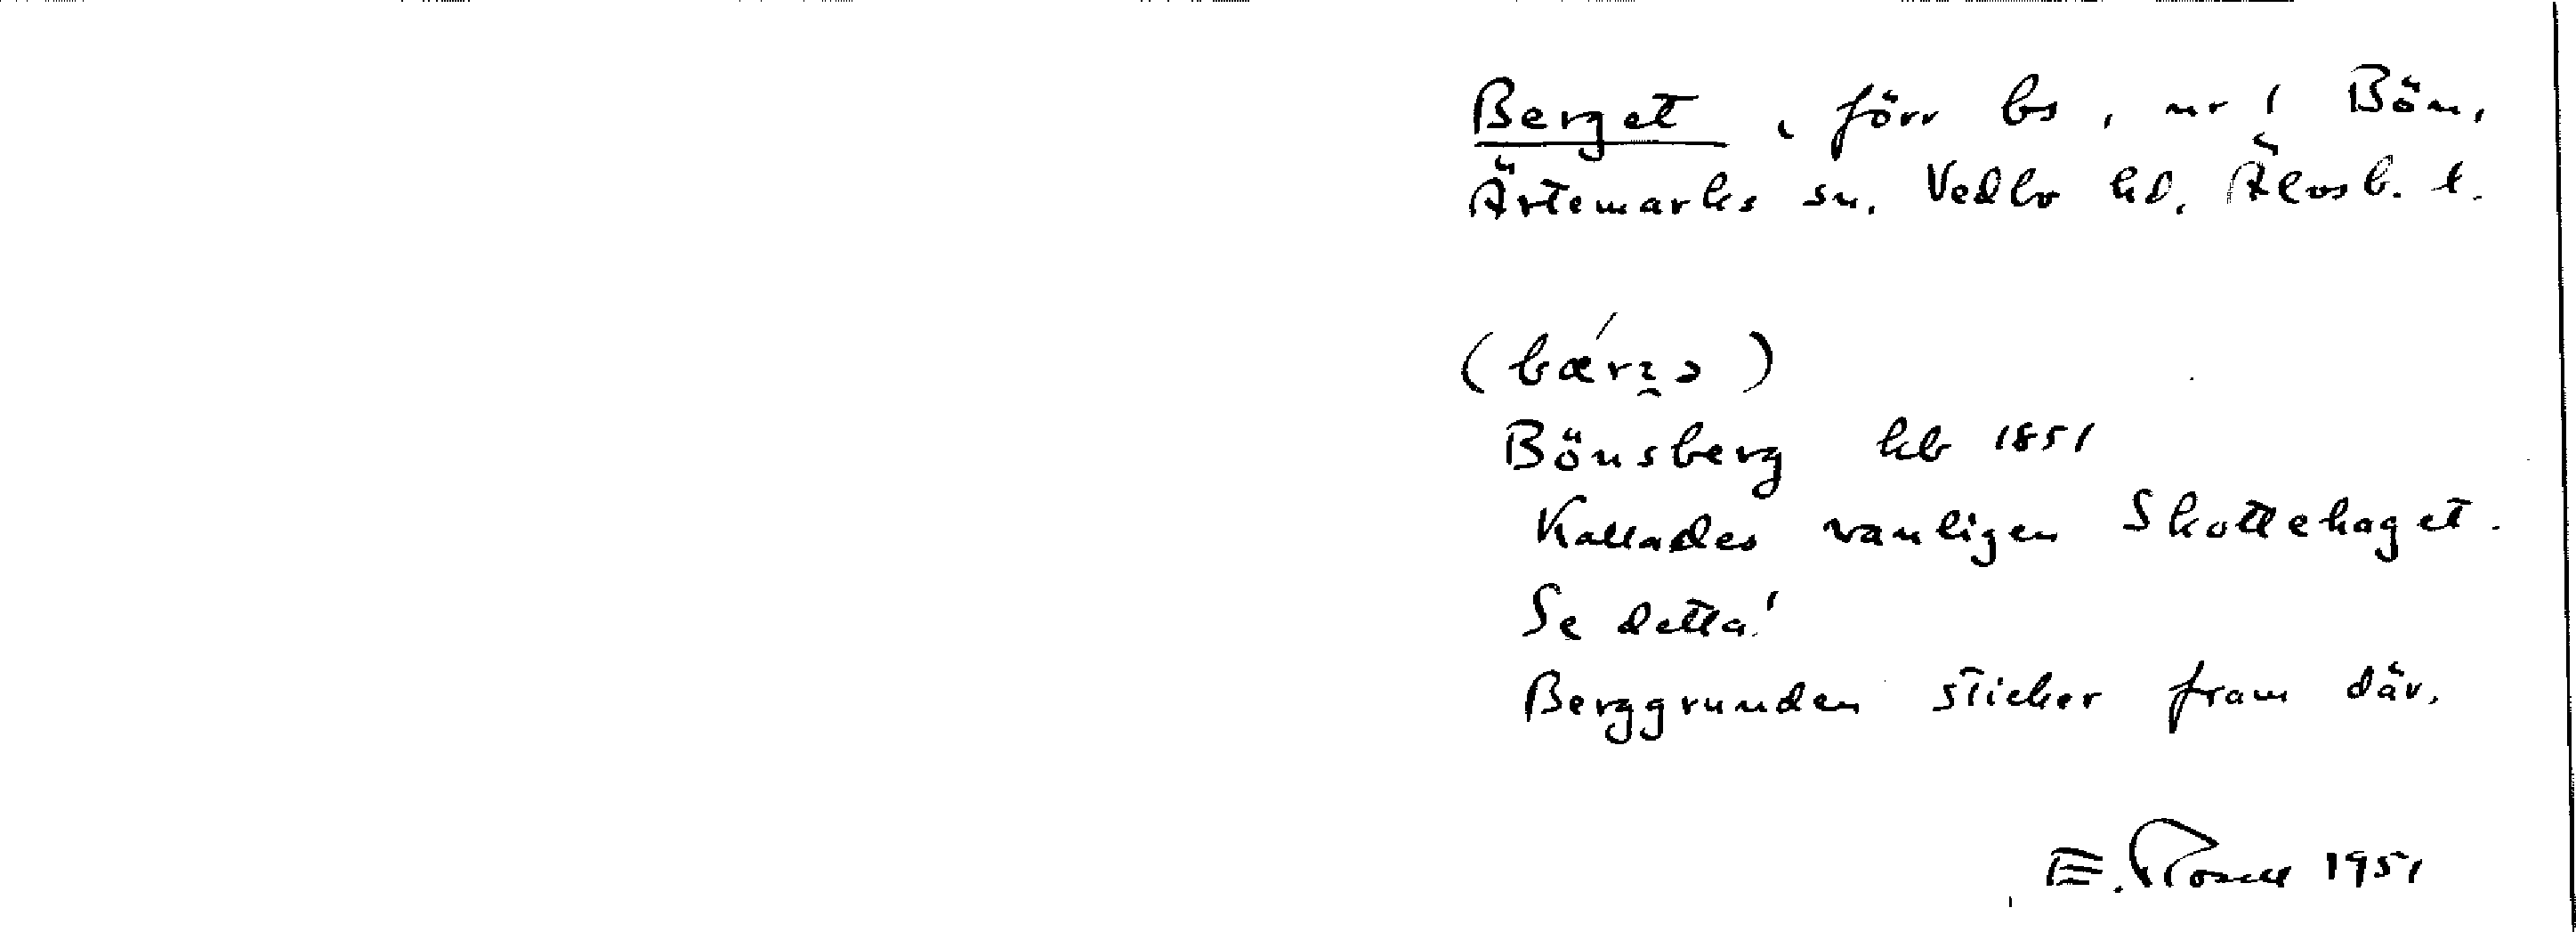 Berget, förr bs, nr 1 Bön,
Ärtemarks sn. Vedbo hd. Älvsb. l.
(bǽrʒ̯ə)
Bönsberg hb 1851
Kallades vanligen Skottehaget.
Se detta!
Berggrunden sticker fram där.
E. Rosell 1951